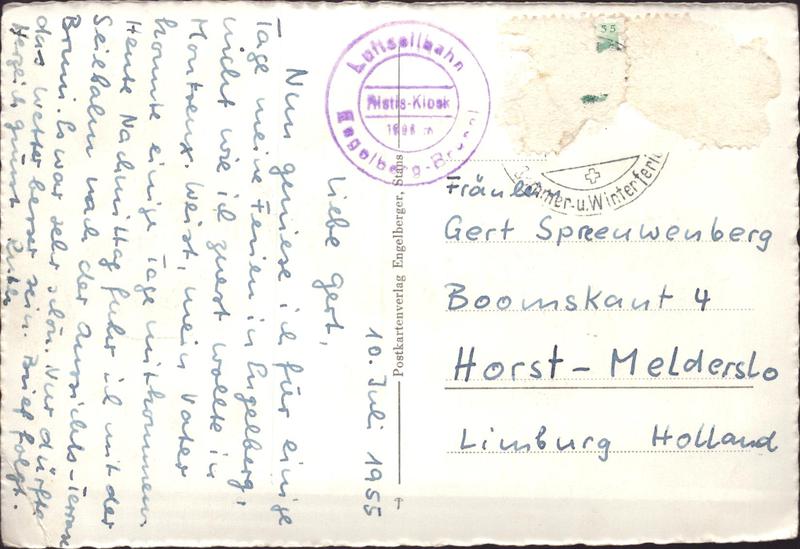 10. Juli 1955
Liebe Gert,
Nun geniese ich für einige
Tage meine Ferien in Engelberg,
nicht wie ich zuerst wollte in
Montreux. Weist, mein Vater
konnte einige Tage mitkommen.
Heute Nachmittag fuhr ich mit der
Seilbahn nach der Aussichts-Terrasse
Brunni. Es war sehr schön. Nur dürfte
das Wetter besser sein. Brief folgt.
Herzlich grüsst
Luftseilbahn
Ristis-Kiosk
Engelberg-Brunni
Postkartenverlag Engelberger, Stans
35
Sommer-u.Winterferi
Fräulein
Gert Spreeuwenberg
Boomskant 4
Horst-Melderslo
Limburg Holland